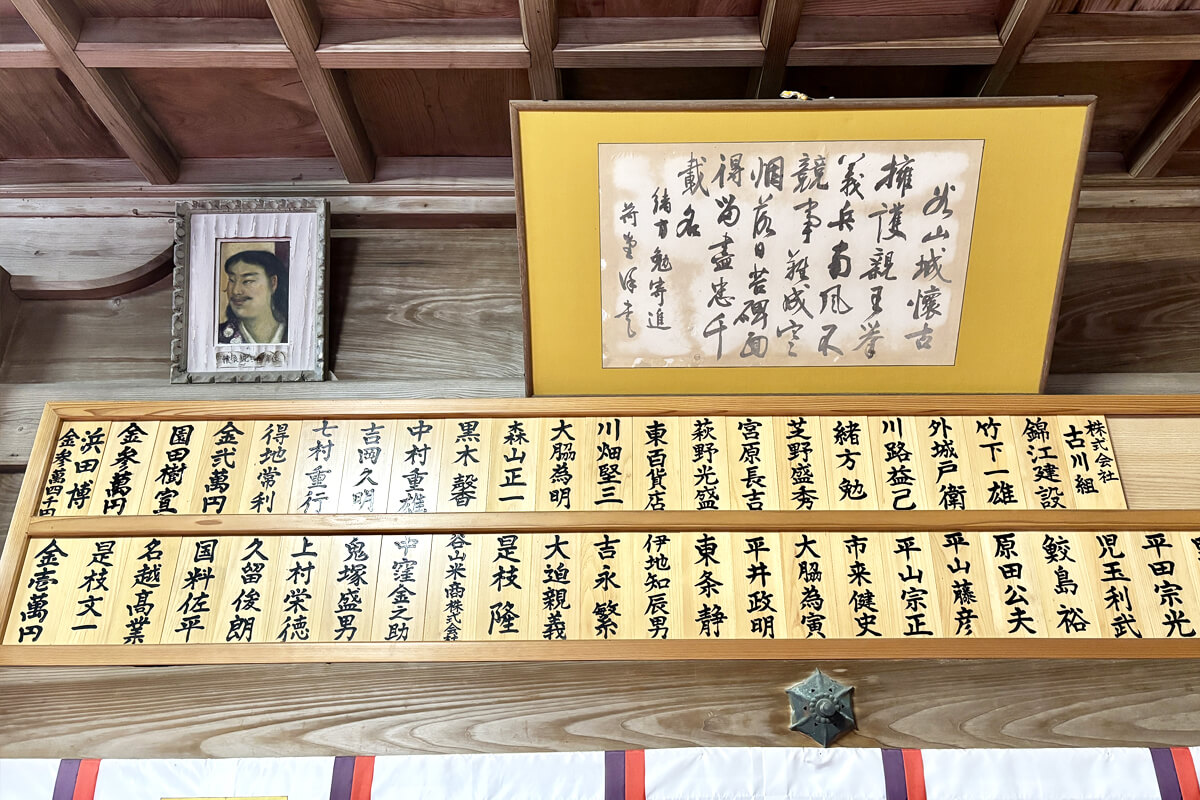 谷山城懐古
擁護親王挙
義兵南風不
競事難成寒
烟落日苔碑面
得留盡忠千
載名
緒方勉寄進
株式会社
古川組
錦江建設
竹下一雄
外城戸衛
川路益己
緒方勉
芝野盛秀
宮原長吉
萩野光盛
東百貨店
川畑堅三
大脇為明
森山正一
黒木馨
中村重雄
吉岡久明
七村重行
得地常利
金弐萬円
園田樹宣
金参萬円
浜田博
金参萬四千円
平田宗光
児玉利武
鮫島裕
原田公夫
平山藤彦
平山宗正
市来健史
大脇為寅
平井政明
東条静
伊地知辰男
吉永繁
大迫親義
是枝隆
谷山米商株式会社
中窪金之助
鬼塚盛男
上村栄徳
久留俊朗
国料佐平
名越高業
是枝文一
金壱萬円